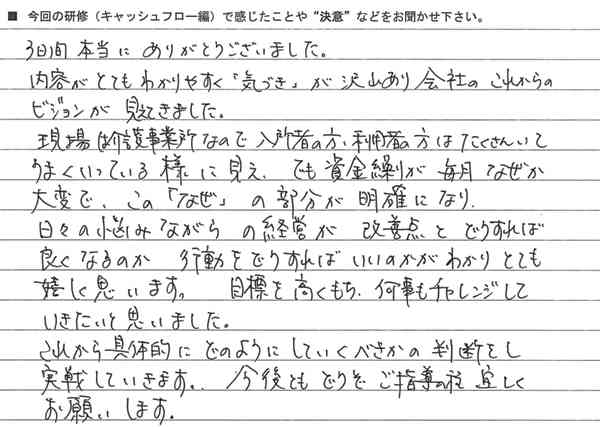 ■ 今回の研修（キャッシュフロー編）で感じたことや “決意” などをお聞かせ下さい。
3日間 本当に ありがとうございました。
内容がとても わかりやすく 「気づき」 が 沢山あり 会社の これからの
ビジョンが 見えてきました。
現場は介護事業所なので 入所者の方、利用者の方 は たくさんいて
うまくいっている 様に 見え、 でも 資金繰りが 毎月 なぜか
大変で、この 「なぜ」 の 部分が 明確に なり、
日々の 悩みながら の経営が 改善点と どうすれば
良くなるのか 行動をどうすれば いいのかが わかり とても
嬉しく思います。 目標を高くもち、何事もチャレンジして
いきたいと思いました。
これから具体的に どのように していくべきかの 判断をし
実戦していきます。 今後とも どうぞ ご指導の程 宜しく
お願いします。